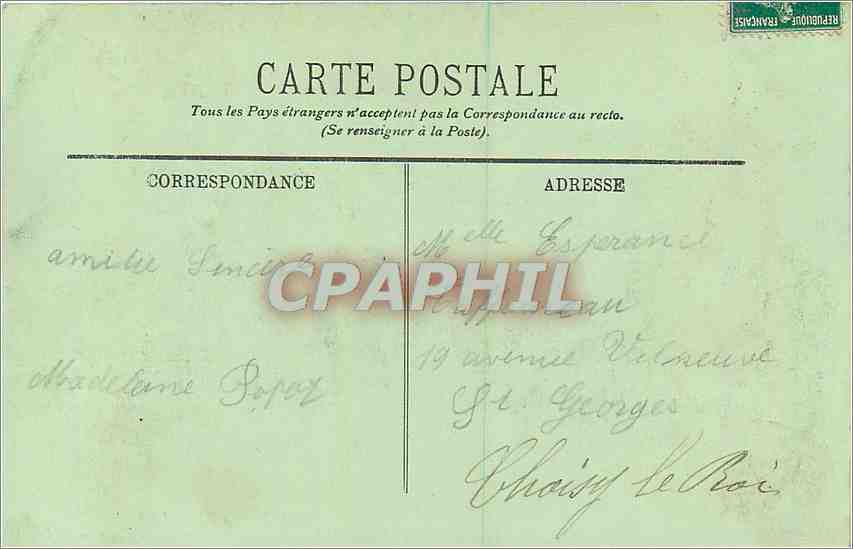 REPUBLIQUE FRANÇAISE
CARTE POSTALE
Tous les Pays étrangers n'acceptent pas la Correspondance au recto.
(Se renseigner à la Poste).
CORRESPONDANCE
amitié Sincère
Madeleine
ADRESSE
Melle Esperance
19 avenue Villeneuve
St. Georges
Choisy le Roi
CPAPHIL